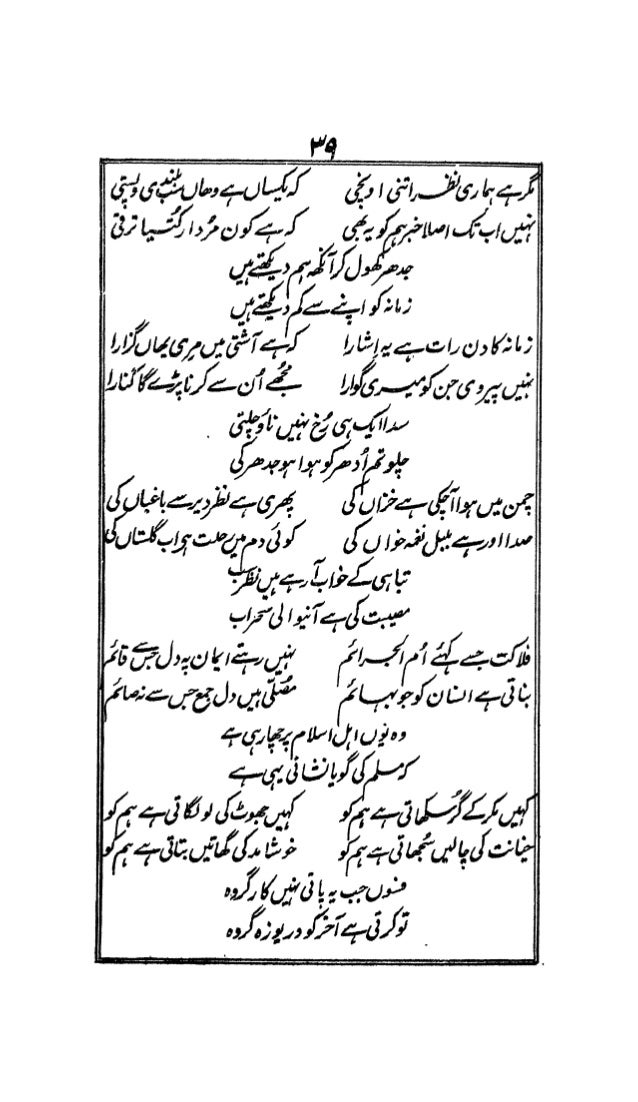 ۳۹
مگر ہے ہماری نظر اتنی اونچی کہ یکساں ہے وھاں سب بلندی و پستی
نہیں اب تک اصلا خبر ہم کو یہ بھی کہ ہے کون مُردار کُتیا ترقی
جدھر کھول کر آنکھ ہم دیکھتے ہیں
زمانہ کو اپنے سے کم دیکھتے ہیں
زمانہ کا دن رات ہے یہ اِشارا کہ ہے آشتی میں مری یھاں گزارا
نہیں پیروی جن کو میری گوارا مجھے اُن سے کرنا پڑے گا کنارا
سدا ایک ہی رُخ نہیں ناؤ چلتی
چلو تم اُدھر کو ہوا ہو جدھر کی
چمن میں ہوا آچکی ہے خزاں کی پھری ہے نظر دیر سے باغباں کی
صدا اور ہے بلبل نغمہ خواں کی کوئی دم میں رحلت ہے اب گلستاں کی
تباہی کے خواب آ رہے ہیں نظر سب
مصیبت کی ہے آنیوالی سحر اب
فلاکت جسے کہئے اُم الجرائم نہیں رہتے ایمان پہ دل جس سے قائم
بناتی ہے انسان کو جو بہائم مُصلّی ہیں دل جمع جس سے نہ صائم
وہ یوں اہل اسلام پر چھا رہی ہے
کہ مسلم کی گویا نشانی یہی ہے
کہیں مکر کے گُر سکھاتی ہے ہم کو کہیں جھوٹ کی لو لگاتی ہے ہم کو
خیانت کی چالیں سُجھاتی ہے ہم کو خوشامد کی گھاتیں بتاتی ہے ہم کو
فسوں جب یہ پاتی نہیں کارگر وہ
تو کرتی ہے آخر کو دریوزہ گر وہ